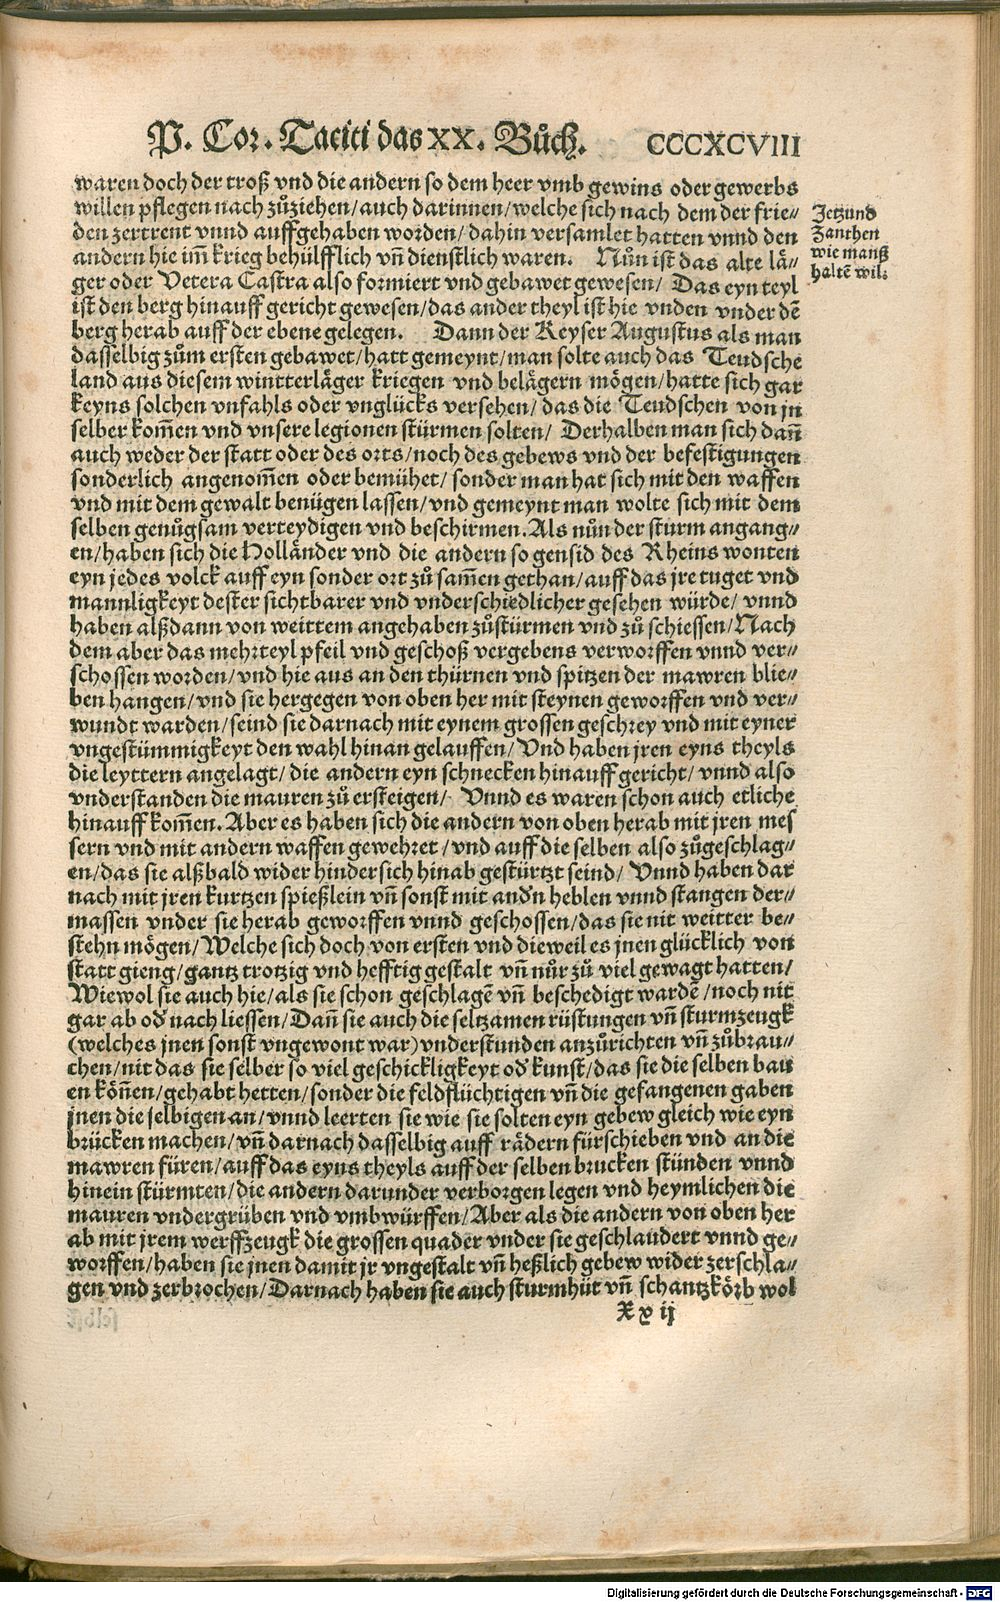 P. Cor. Taciti das XX. Bůch. CCCXCVIII
waren doch der troß vnd die andern so dem heer vmb gewins oder gewerbs
willen pflegen nach zůziehen/auch darinnen/welche sich nach dem der frie⸗
den zertrent vnnd auffgehaben worden/dahin versamlet hatten vnnd den
andern hie im̃ krieg behülfflich vñ dienstlich waren. Nůn ist das alte lä⸗
ger oder Vetera Castra also formiert vnd gebawet gewesen/ Das eyn teyl
ist den berg hinauff gericht gewesen/das ander theyl ist hie vnden vnder dẽ
berg herab auff der ebene gelegen. Dann der Keyser Augustus als man
dasselbig zům ersten gebawet/hatt gemeynt/man solte auch das Teudsche
land aus diesem wintterläger kriegen vnd belägern mögen/hatte sich gar
keyns solchen vnfahls oder vnglücks versehen/das die Teudschen von jn
selber kom̃en vnd vnsere legionen stürmen solten/ Derhalben man sich dañ
auch weder der statt oder des orts/noch des gebews vnd der befestigungen
sonderlich angenom̃en oder bemühet/sonder man hat sich mit den waffen
vnd mit dem gewalt benügen lassen/vnd gemeynt man wolte sich mit dem
selben genůgsam verteydigen vnd beschirmen. Als nůn der sturm angang⸗
en/haben sich die Holländer vnd die andern so gensid des Rheins wonten
eyn jedes volck auff eyn sonder ort zů sam̃en gethan/auff das jre tuget vnd
mannligkeyt dester sichtbarer vnd vnderschiedlicher gesehen würde/ vnnd
haben alßdann von weittem angehaben zůstürmen vnd zů schiessen/Nach
dem aber das mehrteyl pfeil vnd geschoß vergebens verworffen vnnd ver⸗
schossen worden/vnd hie aus an den thürnen vnd spitzen der mawren blie⸗
ben hangen/vnd sie hergegen von oben her mit steynen geworffen vnd ver⸗
wundt warden/seind sie darnach mit eynem grossen geschrey vnd mit eyner
vngestümmigkeyt den wahl hinan gelauffen/Vnd haben jren eyns theyls
die leyttern angelagt/die andern eyn schnecken hinauff gericht/vnnd also
vnderstanden die mauren zů ersteigen/ Vnnd es waren schon auch etliche
hinauff kom̃en. Aber es haben sich die andern von oben herab mit jren mes
sern vnd mit andern waffen gewehret/vnd auff die selben also zůgeschlag⸗
en/das sie alßbald wider hindersich hinab gestürtzt seind/ Vnnd haben dar
nach mit jren kurtzen spießlein vñ sonst mit andn heblen vnnd stangen der⸗
massen vnder sie herab geworffen vnnd geschossen/das sie nit weitter be⸗
stehn mögen/Welche sich doch von ersten vnd dieweil es jnen glücklich von
statt gieng/gantz trotzig vnd hefftig gestalt vñ nůr zů viel gewagt hatten/
Wiewol sie auch hie/als sie schon geschlagẽ vñ beschedigt wardẽ/noch nit
gar ab od nach liessen/Dañ sie auch die seltzamen rüstungen vñ sturmzeugk
(welches jnen sonst vngewont war)vnderstunden anzůrichten vñ zůbrau⸗
chen/nit das sie selber so viel geschickligkeyt od kunst/das sie die selben bau
en kön̄en/gehabt hetten/sonder die feldflüchtigen vñ die gefangenen gaben
jnen die selbigen an/vnnd leerten sie wie sie solten eyn gebew gleich wie eyn
brücken machen/vñ darnach dasselbig auff rädern fürschieben vnd an die
mawren füren/auff das eyns theyls auff der selben brucken stünden vnnd
hinein stürmten/die andern darunder verborgen legen vnd heymlichen die
mauren vndergrüben vnd vmbwürffen/Aber als die andern von oben her
ab mit jrem werffzeugk die grossen quader vnder sie geschlaudert vnnd ge⸗
worffen/haben sie jnen damit jr vngestalt vñ heßlich gebew wider zerschla⸗
gen vnd zerbrochen/Darnach haben sie auch sturmhüt vñ schantzkörb wol
Xx ij
Jetzund
Zanthen
wie manß
haltẽ wil:
Digitalisierung gefördert durch die Deutsche Forschungsgemeinschaft - DFG